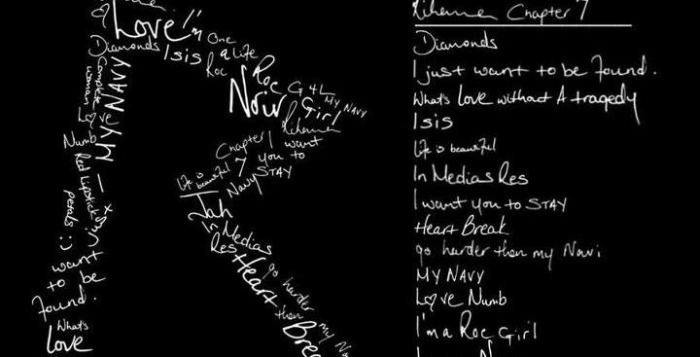 Love!
I'm
One
Diamonds
Isis
a life
Roc
Complete
woman
Love
MY NAVY
Numb
Red Lipstick
petals
I just
want
to be
found.
What's
LOVE
Roc
Now
G4L
MY NAVY
Girl
Rihanna
Chapter 7
I want
you to
STAY
Life is
beautiful
Navy
Jah
In Medias
Res
Heart
Break
go harder
than
my Navi
Rihanna Chapter 7
Diamonds
I just want to be found.
What's LOVE without A tragedy
Isis
Life is beautiful
In Medias Res
I want you to STAY
Heart Break
go harder than my Navi
MY NAVY
Love Numb
I'm a Roc Girl